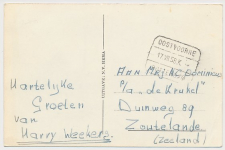 Hartelijke
Groeten
van
Harry Weekers.
OOSTVOORNE
Aan
p/a "de Krukel"
Duinweg 89
Zoutelande
(Zeeland)